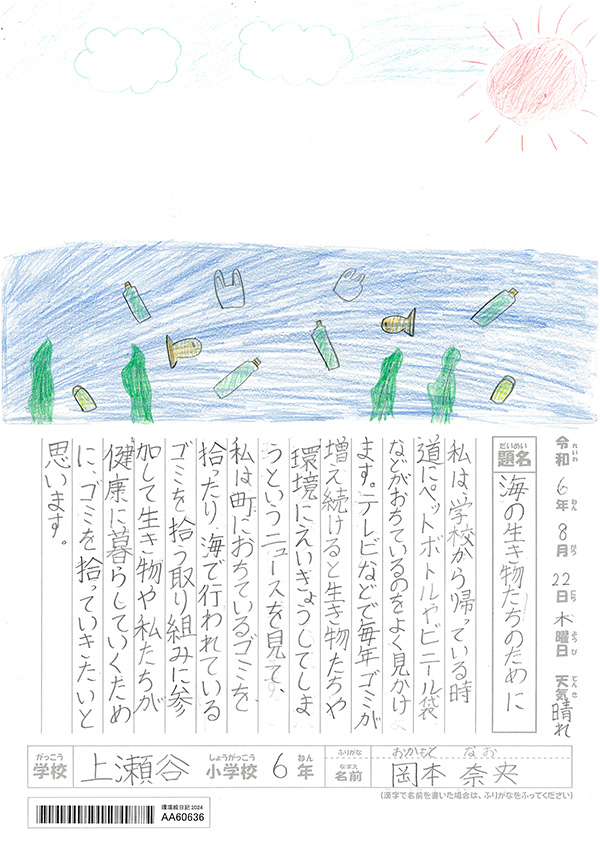 令和6年8月22日木曜日 天気晴れ
れいわ ねん がつ にち ようび てんき
だいめい
題名 海の生き物たちのために
私は、学校から帰っている時
道にペットボトルやビニール袋
などがおちているのをよく見かけ
ます。テレビなどで毎年ゴミが
増え続けると生き物たちや
環境にえいきょうしてしま
うというニュースを見て、
私は町におちているゴミを、
拾ったり、海で行われている
ゴミを拾う取り組みに参
加して生き物や私たちが
健康に暮らしていくため
に、ゴミを拾っていきたいと
思います。
がっこう しょうがっこう ねん ふりがな おかもと なお
学校 上瀬谷 小学校 6年 なまえ 名前 岡本 奈央
(漢字で名前を書いた場合は、ふりがなをふってください)
環境絵日記2024
AA60636